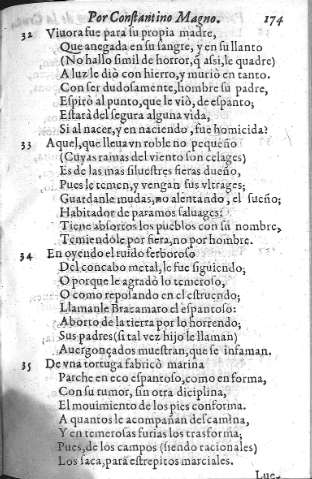 Por Constantino Magno. 174
32 Viuora fue para su propia madre,
Que anegada en su sangre, y en su llanto
(No hallo simil de horror, q̃ assi, le quadre)
A luz le diò con hierro, y muriò en tanto.
Con ser dudosamente, hombre su padre,
Espirò al punto, que le viò, de espanto;
Estarà del segura alguna vida,
Si al nacer, y en naciendo, fue homicida?
33 Aquel, que lleua vn roble no pequeño
(Cuyas ramas del viento son celages)
Es de las mas siluestres fieras dueño,
Pues le temen, y vengan sus vltrages;
Guardanle mudas, no alentando, el sueño;
Habitador de paramos saluages:
Tiene absortos los pueblos con su nombre,
Temiendòle por fiera, no por hombre.
34 En oyendo el ruido ferboroso
Del concabo metal, le fue siguiendo,
O porque le agradò lo temeroso,
O como reposando en el estruendo;
Llamanle Bracamaro el espantoso:
Aborto de la tierra por lo horrendo;
Sus padres (si tal vez hijo le llaman)
Auergonçados muestran, que se infaman.
35 De vna tortuga fabricò marina
Parche en eco espantoso, como en forma,
Con su rumor, sin otra diciplina,
El mouimiento de los pies conforma.
A quantos le acompañan descamina,
Y en temerosas furias los trasforma;
Pues, de los campos (siendo racionales)
Los saca, para estrepitos marciales.
Lue-